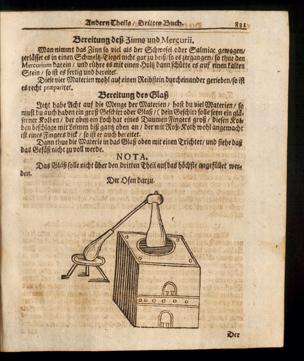 Andern Theils / Drittes Buch. 821
Bereitung deß Zinns und Mercurii.
Man nimmt das Zinn so viel als der Schwefel oder Salmiac gewogen /
zerlässet es in einen Schmeltz-Tiegel nicht gar zu heiß / so es zergangen / so thue den
Mercurium darein / und rühre es mit einen Holtz / dann schütte es auf einen kalten
Stein / so ist es fertig und bereitet.
Diese vier Materien wohl auf einen Reibstein durcheinander gerieben / so ist
es recht præparitet.
Bereitung des Glaß
Jetzt habe Acht auf die Menge der Materien / hast du viel Materien / so
must du auch haben ein groß Geschirr oder Glaß / dein Geschirr solle seyn ein glä-
serner Kolben / der oben ein Loch hat eines Daumen Fingers groß / diesen Kol-
ben beschlage mit Leimen biß gantz oben an / der mit Roß-Koth wohl angemacht
ist eines Fingers dick / so ist er auch bereitet.
Dann thue die Materie in das Glaß oben mit einen Trichter / und siehe daß
das Gefäß nicht zu voll werde.
NOTA.
Das Glaß solle nicht über den dritten Theil auf das höchste angefüllet wer-
den.
Der Ofen darzu.
Der